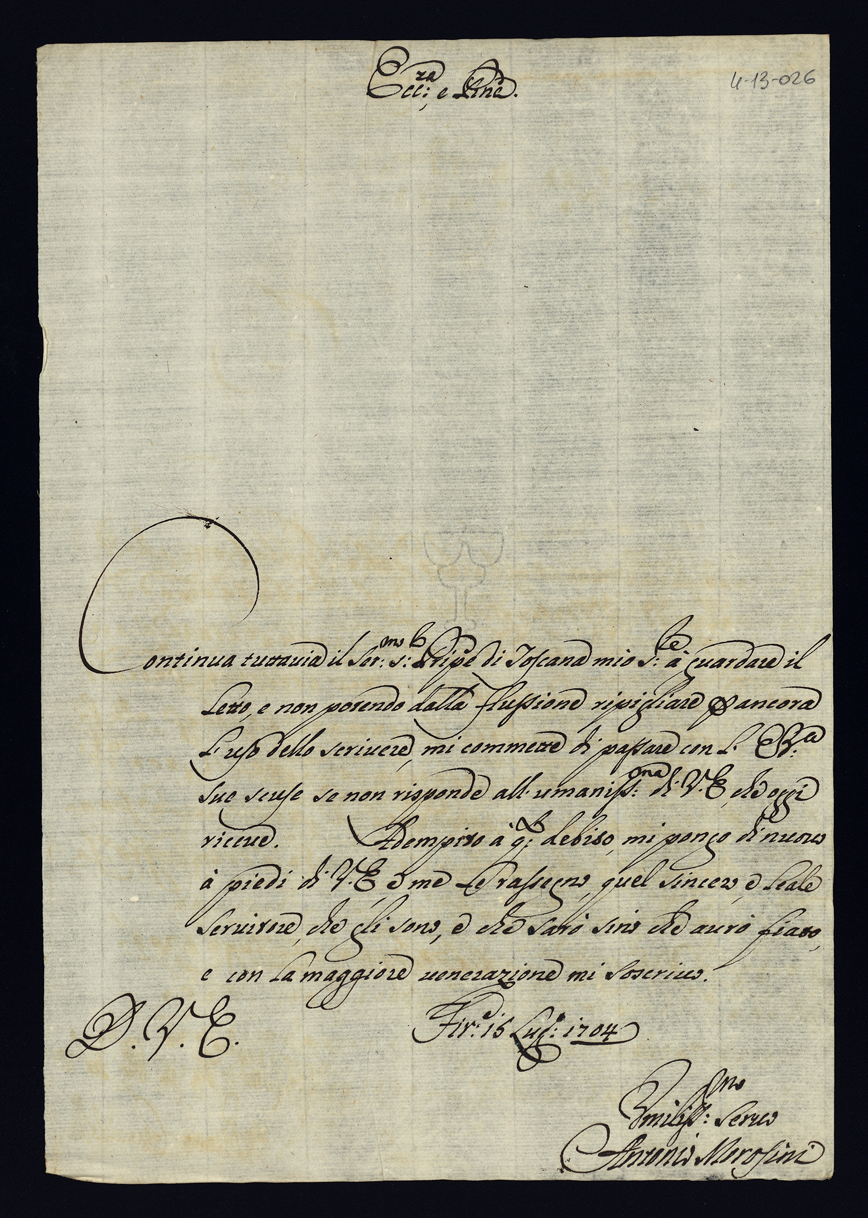 Ecc:za e P̃rone.
4-13-026
Continua tuttauia il Ser:mo s:r Pñpe di Toscana mio s:re à guardare il
Letto, e non potendo dalla flussione ripigliare p ancora
L'uso dello scriuere, mi commette di passare con L' E.V:a
sue scuse se non risponde all'umaniss:ma di V.E, che oggi
riceue. Adempito à q:to debito, mi pongo di nuouo
à piedi di V.E, e me Le rassegno, quel sincero, e Leale
Seruitore, che gli sono, e che sarò sino che aurò fiato,
e con La maggiore uenerazione mi soscriuo.
D. V. E.
Fir:e 15 Lug:o 1704
Vmiliss:mo Seruo
Antonio Morosini